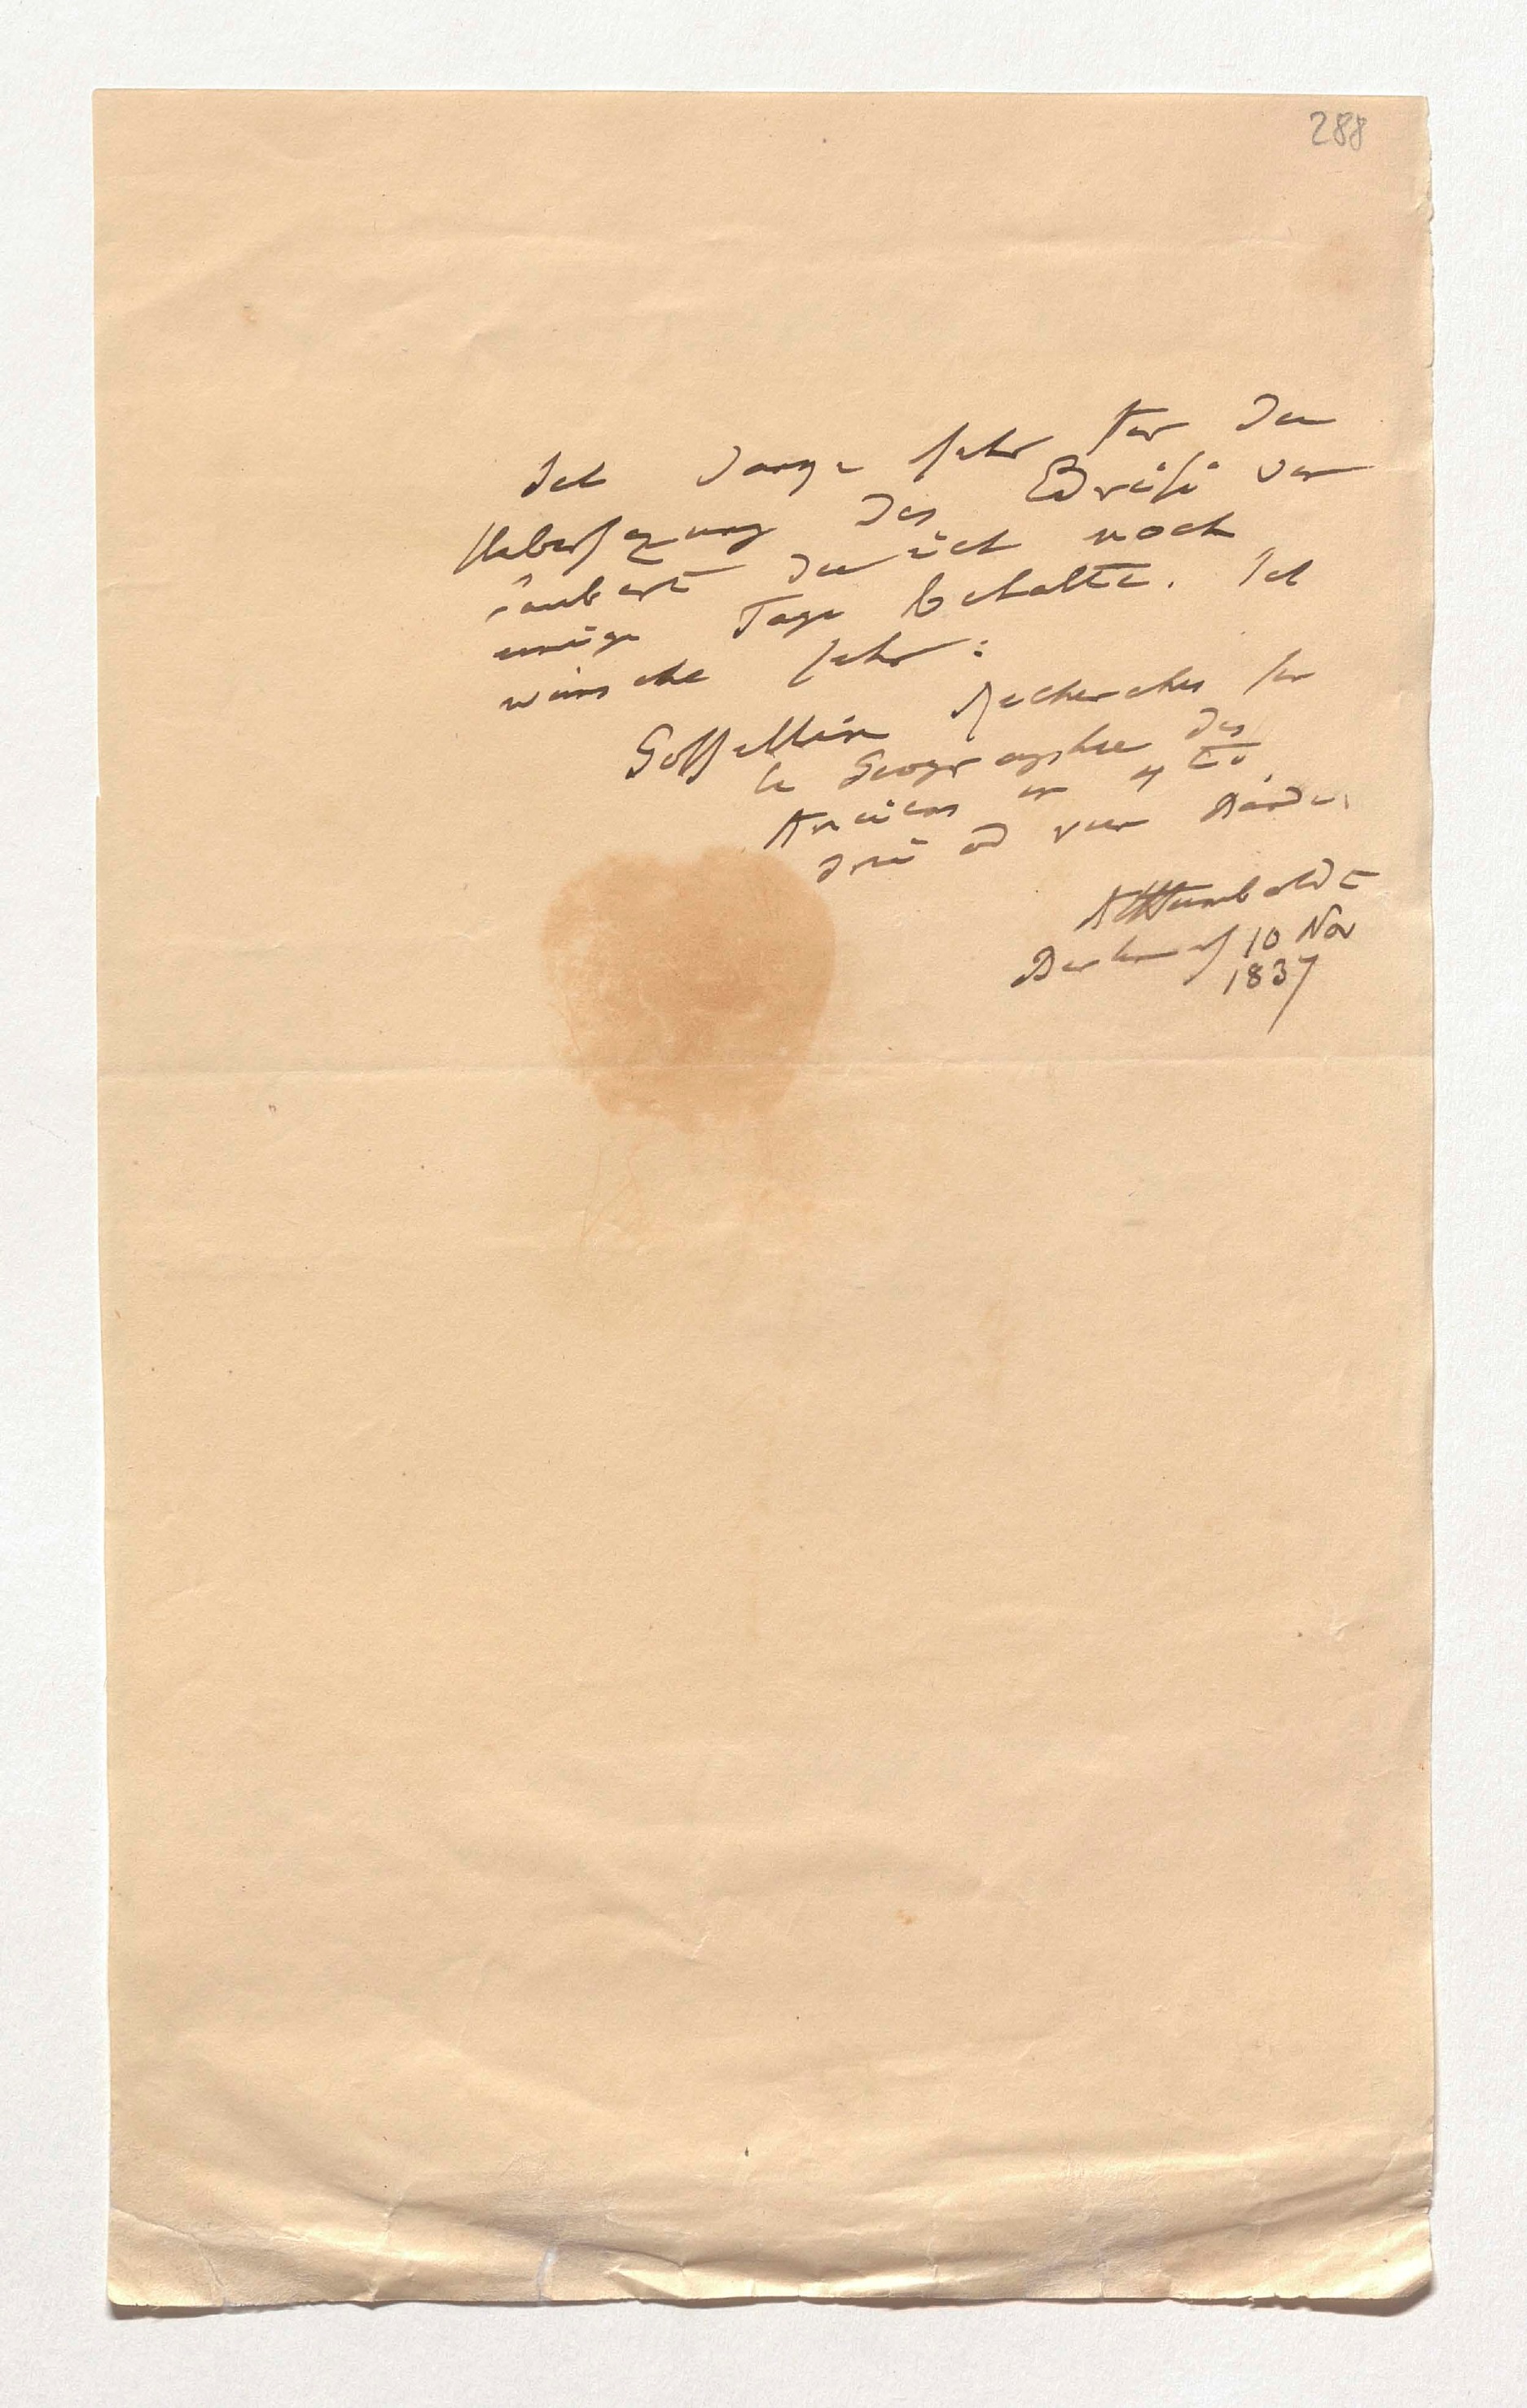 288
Ich danke sehr für die
Uebersezung des Edrisi von
Jaubert die ich noch
einige Tage behalte. Ich
wünsche sehr:
Gossellin Recherches sur
la Geographie des
Anciens in 4to
drei od vier Bände.
AlHumboldt
Berlin d 10 Nov
1837